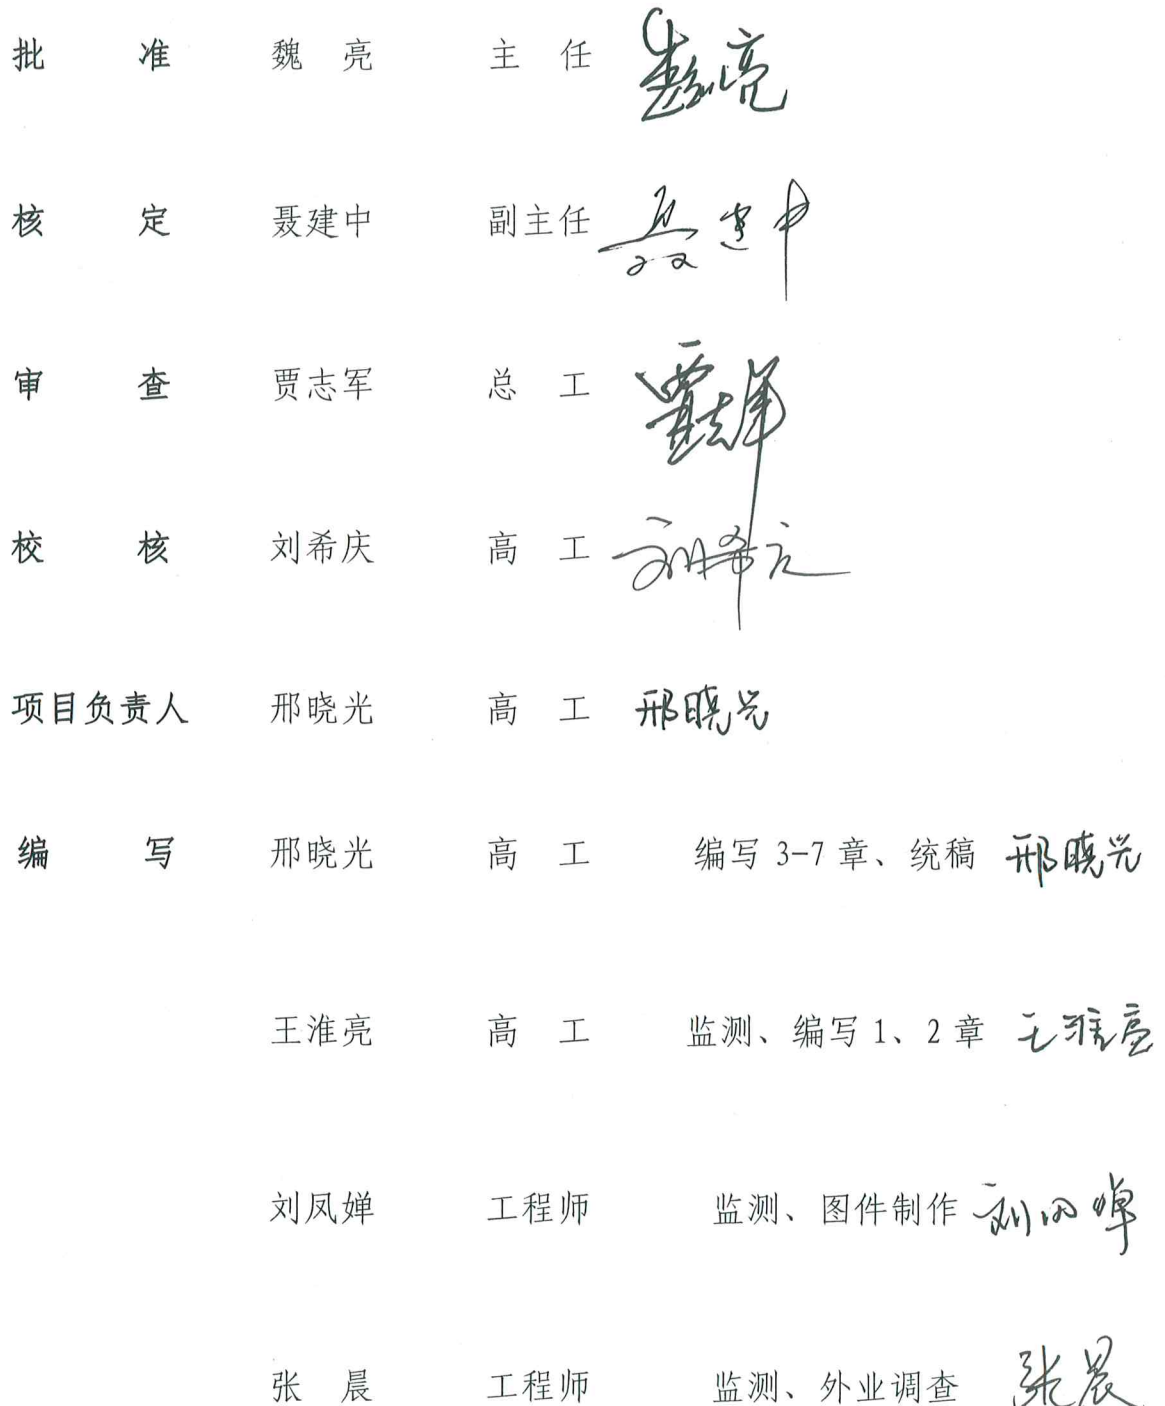 批 准 魏 亮 主 任 魏亮
核 定 聂建中 副主任 聂建中
审 查 贾志军 总 工 贾志军
校 核 刘希庆 高 工 刘希庆
项目负责人 邢晓光 高 工 邢晓光
编 写 邢晓光 高 工 编写 3-7 章、统稿 邢晓光
王淮亮 高 工 监测、编写 1、2 章 王淮亮
刘凤婵 工程师 监测、图件制作 刘凤婵
张 晨 工程师 监测、外业调查 张晨